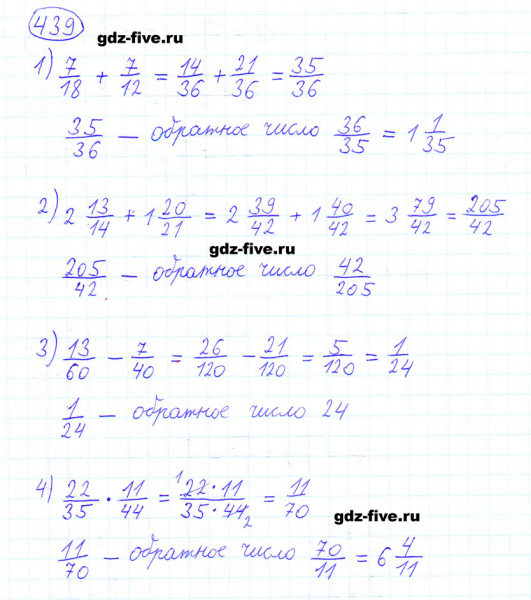 439
gdz-five.ru
1) 7/18 + 7/12 = 14/36 + 21/36 = 35/36
35/36 — обратное число 36/35 = 1 1/35
2) 2 13/14 + 1 20/21 = 2 39/42 + 1 40/42 = 3 79/42 = 205/42
gdz-five.ru
205/42 — обратное число 42/205
3) 13/60 − 7/40 = 26/120 − 21/120 = 5/120 = 1/24
1/24 — обратное число 24
4) 22/35 · 11/44 = ¹22·11/35·44₂ = 11/70
gdz-five.ru
11/70 — обратное число 70/11 = 6 4/11